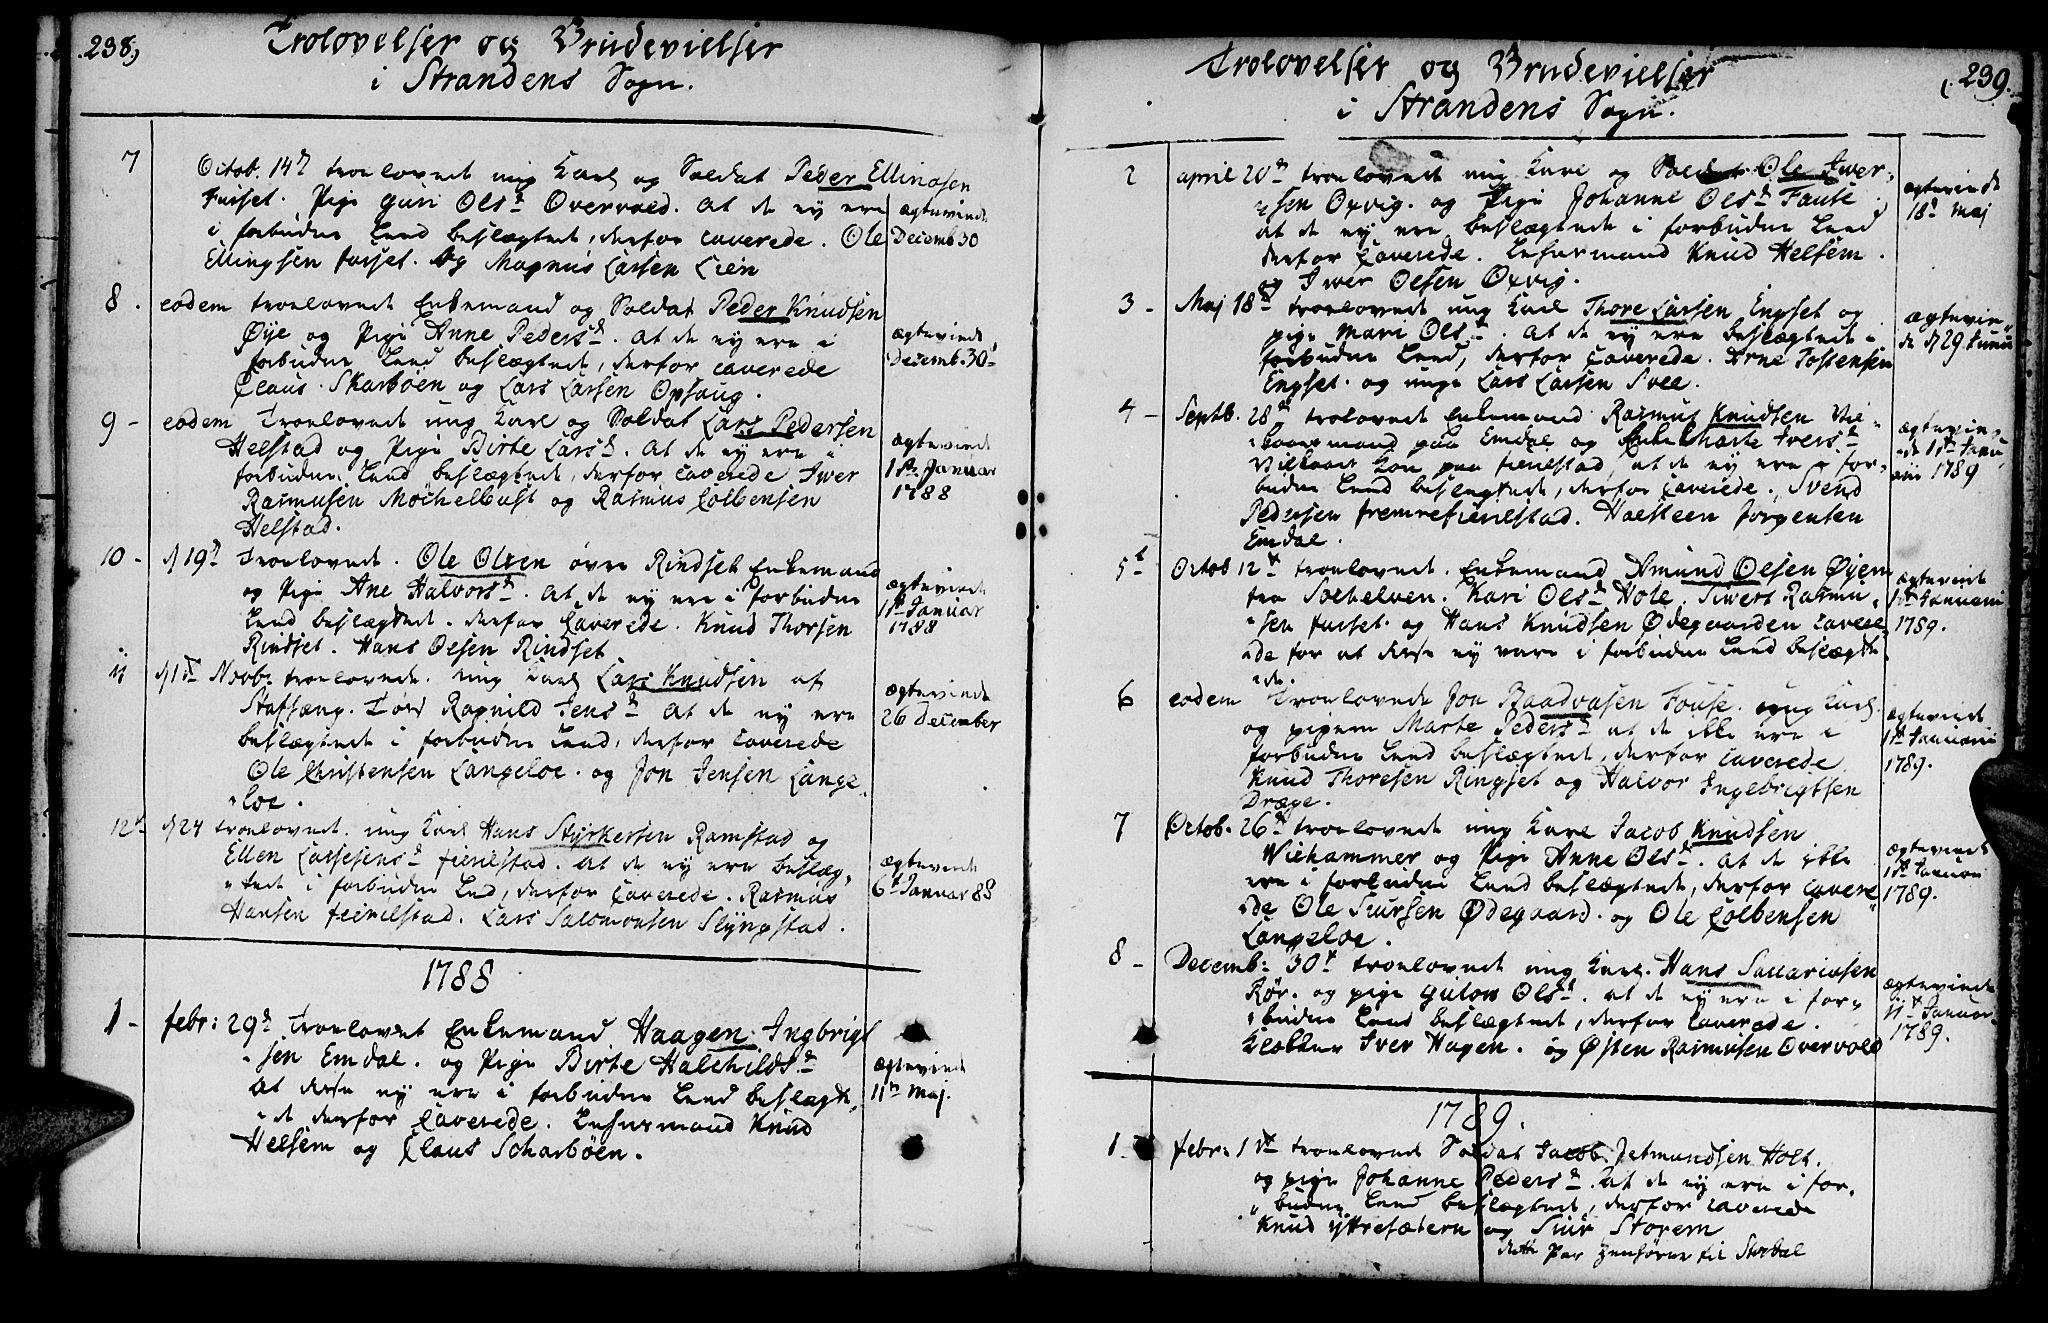 238,) Trolovelser og Brudevielser
i Strandens Sogn.
7 Octob. 14d troelovede ung Karl og Soldat Peder Ellingsen
Furset. Pige Guri Olsd Overvold. At de ey ere
i forbudne Leed beslægtede, derfor caverede. Ole
Ellingsen furset. og Magnus Larsen Lien
ægteviede
Decemb 30
8. eodem troelovede Enkemand og Soldat Peder Knudsen
Øye og Pige Anne Pedersd. At de ey ere i
forbudne Leed beslægtede, derfor caverede
Claus Skarbøen og Lars Larsen Opsaug.
ægteviede
Decemb. 30
9 - eodem Troelovede ung Karl og Soldat Lars Pedersen
Helstad og Pige Birte Larsd. At de ey ere i
forbudne Leed beslægtede, derfor caverede Iwer
Rasmusen Mochelbust og Rasmus Colbensen
Helstad.
ægteviede
1st Januar
1788
10 - d 19d Troelovede. Ole Olsen øvre Rindset Enkemand
og Pige Ane Halvorsd. At de ey ere i forbudne
Leed beslægtede. derfor Caverede. Knud Thorsen
Rindset. Hans Olsen Rindset
ægteviede
1st Januar
1788
11 d 1st Novbr troelovede. ung Karl Lars Knudsen af
Stafsæng. Ragnild Jensd At de ey ere
beslægtede i forbudne Leed, derfor caverede
Ole Christensen Langeloe. og Jon Jensen Lange
"loe.
ægteviede
26 December
12 d 24 troelovede ung Karl Hans Styrkersen Ramstad og
Ellen Lassesensd fierilstad. At de ey ere beslæg,
"tede i forbudne Leed, derfor Caverede. Rasmus
Hansen feirilstad. Lars Salomonsen Slyngstad.
ægteviede
6t Januar 88
1788
1 - febr: 29d Troelovet Enkemand Haagen Ingbrigt
"sen Emdal. og Pige Birte Halchildsd
At disse ey ere i forbudne Leed beslægte,
"de derfor Caverede. Lehnsmand Knud
Helsem og Claus Scharbøen.
ægteviede
11te Maj.
Trolovelser og Brudevielser (239.
i Strandens Sogn.
2 april 20d troelovede ung Karl og Soldat Ole Iwer,
"sen Oxvig. og Pige Johanne Olsd Fause
At de ey ere beslægtede i forbudne Leed
derfor Caverede. Lehnsmand Knud Helsem.
og Iwer Olsen Oxvig.
ægteviede
18d Maj
3 - Maj 18d troelovede ung Karl Thore Larsen Engset og
pige Mari Olsd. At de ey ere beslægtede i
forbudne Leed, derfor Caverede. Arne Tostensen
Engset. og unge Lars Larsen Svee.
ægtevie,
de d 29 Junii
4 - Septb. 28d trolovede Enkemand Rasmus Knudsen Vil-
"kaarsmand paa Emdal og Enke Marte Iversd
Vilkaars Kone paa fierilstad, at de ey ere i for-
budne Leed beslægtede, derfor Caverede. Svend
Pedersen fremrefierilstad. Halsteen Jørgensen
Emdal.
ægtevie,
de 1st Janu,
arii 1789
5t Octob 12t troelovede. Enkemand Amund Olsen Øyen
fra Sochelven. Kari Olsd Hole. Siwert Rasmu,
"sen furset. og Hans Knudsen Ødegaarden cavere
"de for at disse ey vare i forbudne Leed beslægte
"de.
ægteviede
1st Januari
1789.
6 eodem Troelovede Jon Baadvasen Fouse. ung Karl.
og pigen Marte Pedersd at de ikke ere i
forbudne Leed beslægtede, derfor Caverede
Knud Thoresen Ringset og Halvor Ingebrigtsen
Dræge.
ægteviede
1st Januarii
1789.
7 Octob. 26t troelovede ung Karl Jacob Knudsen
Wiehammer og Pige Anne Olsd. At de ikke
ere i forbudne Leed beslægtede, derfor cavere
"de Ole Siursen Ødegaard. og Ole Colbensen
Langeloe.
ægteviede
1st Januari
1789.
8 - Decemb: 30t troelovede ung Karl. Hans Saccariasen
Rør. og pige Gulow Olsd. at de ey ere i for"
"budne Leed beslægtede, derfor Caverede.
Klokker Iver Hagen. og Østen Rasmusen Overvold
ægteviede
11t Januar.
1789.
1789.
1. febr: 1st troelovede Soldat Jacob Jetmundsen Holt.
og pige Johanne Pedersd. At de ey ere i for,
"budne Leed beslægtede, derfor caverede
Knud yttresætern og Siur Storem
dette Par henhører til Stordal